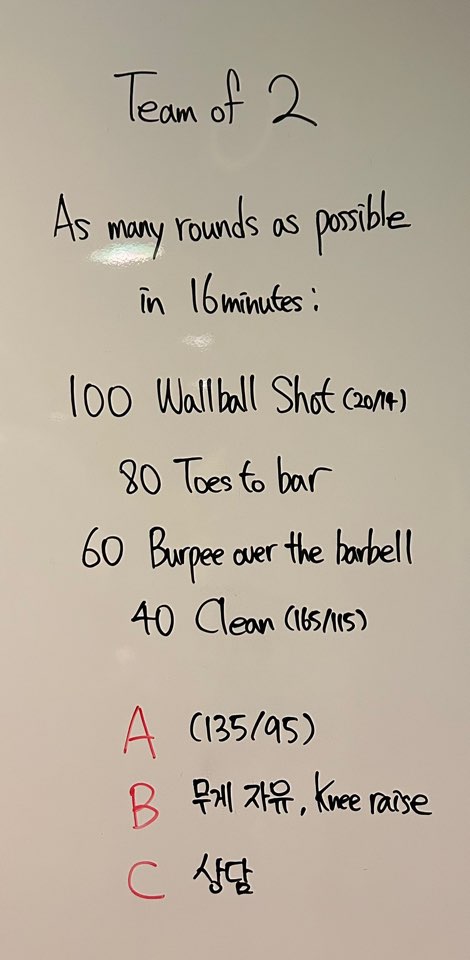 Team of 2
As many rounds as possible
in 16minutes:
100 Wallball Shot (20/14)
80 Toes to bar
60 Burpee over the barbell
40 Clean (165/115)
A (135/95)
B 무게 자유, Knee raise
C 상담